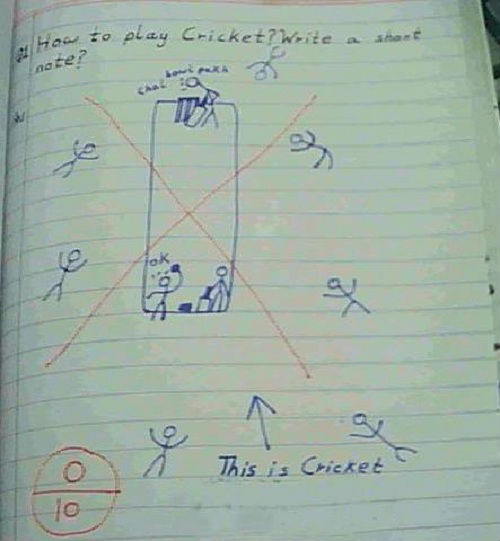 How to play Cricket? Write a short
note?
chal bowl path
ok
This is Cricket
0
10